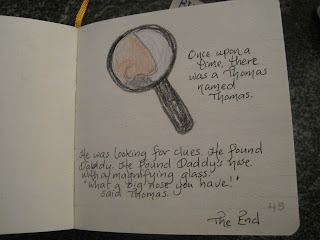 Once upon a
time, there
was a Thomas
named
Thomas.
He was looking for clues. He found
Daddy. He found Daddy's nose
with a magnifying glass.
"What a big nose you have!"
said Thomas.
48
The End